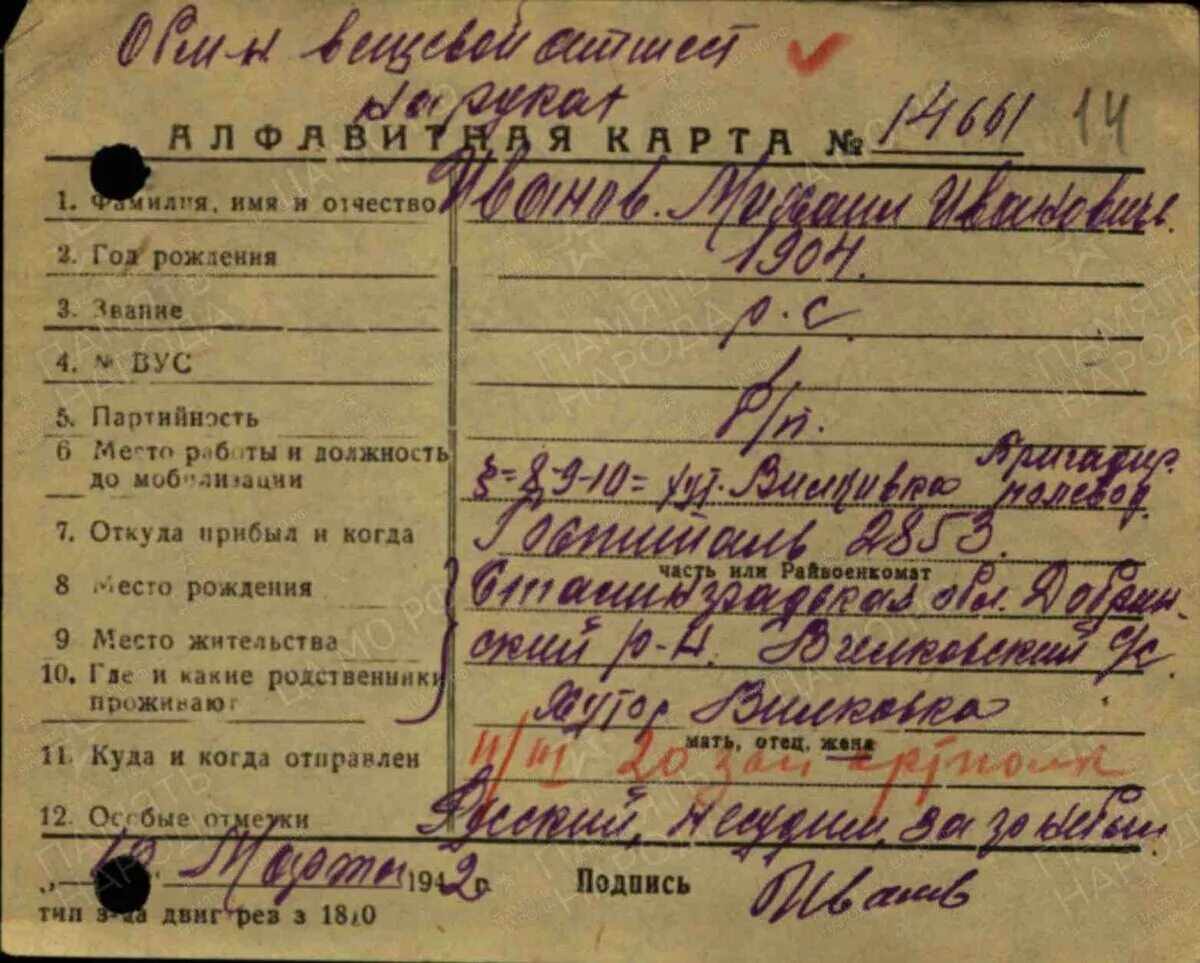 вещевой аттест
на руках
АЛФАВИТНАЯ КАРТА № 14661 14
1. Фамилия, имя и отчество Иванов. Михаил Иванович.
2. Год рождения 1904.
3. Звание р.с
4. № ВУС 1
5. Партийность б/п.
6 Место работы и должность до мобилизации §=8-9-10= хут. Вилковка Бригадир полевод.
7. Откуда прибыл и когда Госпиталь 2853.
часть или Райвоенкомат
8 Место рождения Сталинградская обл. Добрин-
9 Место жительства ский р-н. Вилковский с/с
10. Где и какие родственники проживают Хутор Вилковка
мать, отец, жена
11. Куда и когда отправлен 11/III 20 зап артполк
12. Особые отметки Русский, несудим, за
Марта 1942 г. Подпись Иванов
тип з-да двиг рев з 18
ПАМЯТЬ НАРОДА
ЦАМО РФ